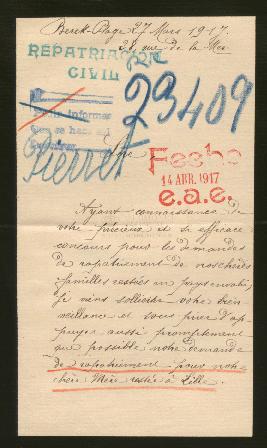 Berck-Plage 27 Mars 1917.
rue de la Mer
REPATRIACION
CIVIL
23409
Pierret
Fecha
14 ABR. 1917
e.a.e.
Ayant connaissance de
votre précieux et si efficace
concours pour les demandes
de rapatriement de nos chères
familles restées en pays envahi,
je viens solliciter votre bien
veillance et vous prier d'ap
puyer aussi promptement
que possible notre demande
de rapatriement pour notre
chère Mère restée à Lille.